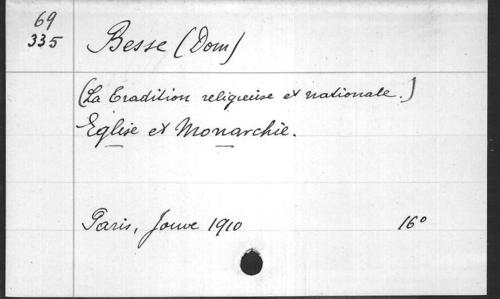 69
335
Besse (Dom)
(La Tradition religieuse et nationale.)
Eglise et Monarchie.
Paris, Jouve 1910 16°